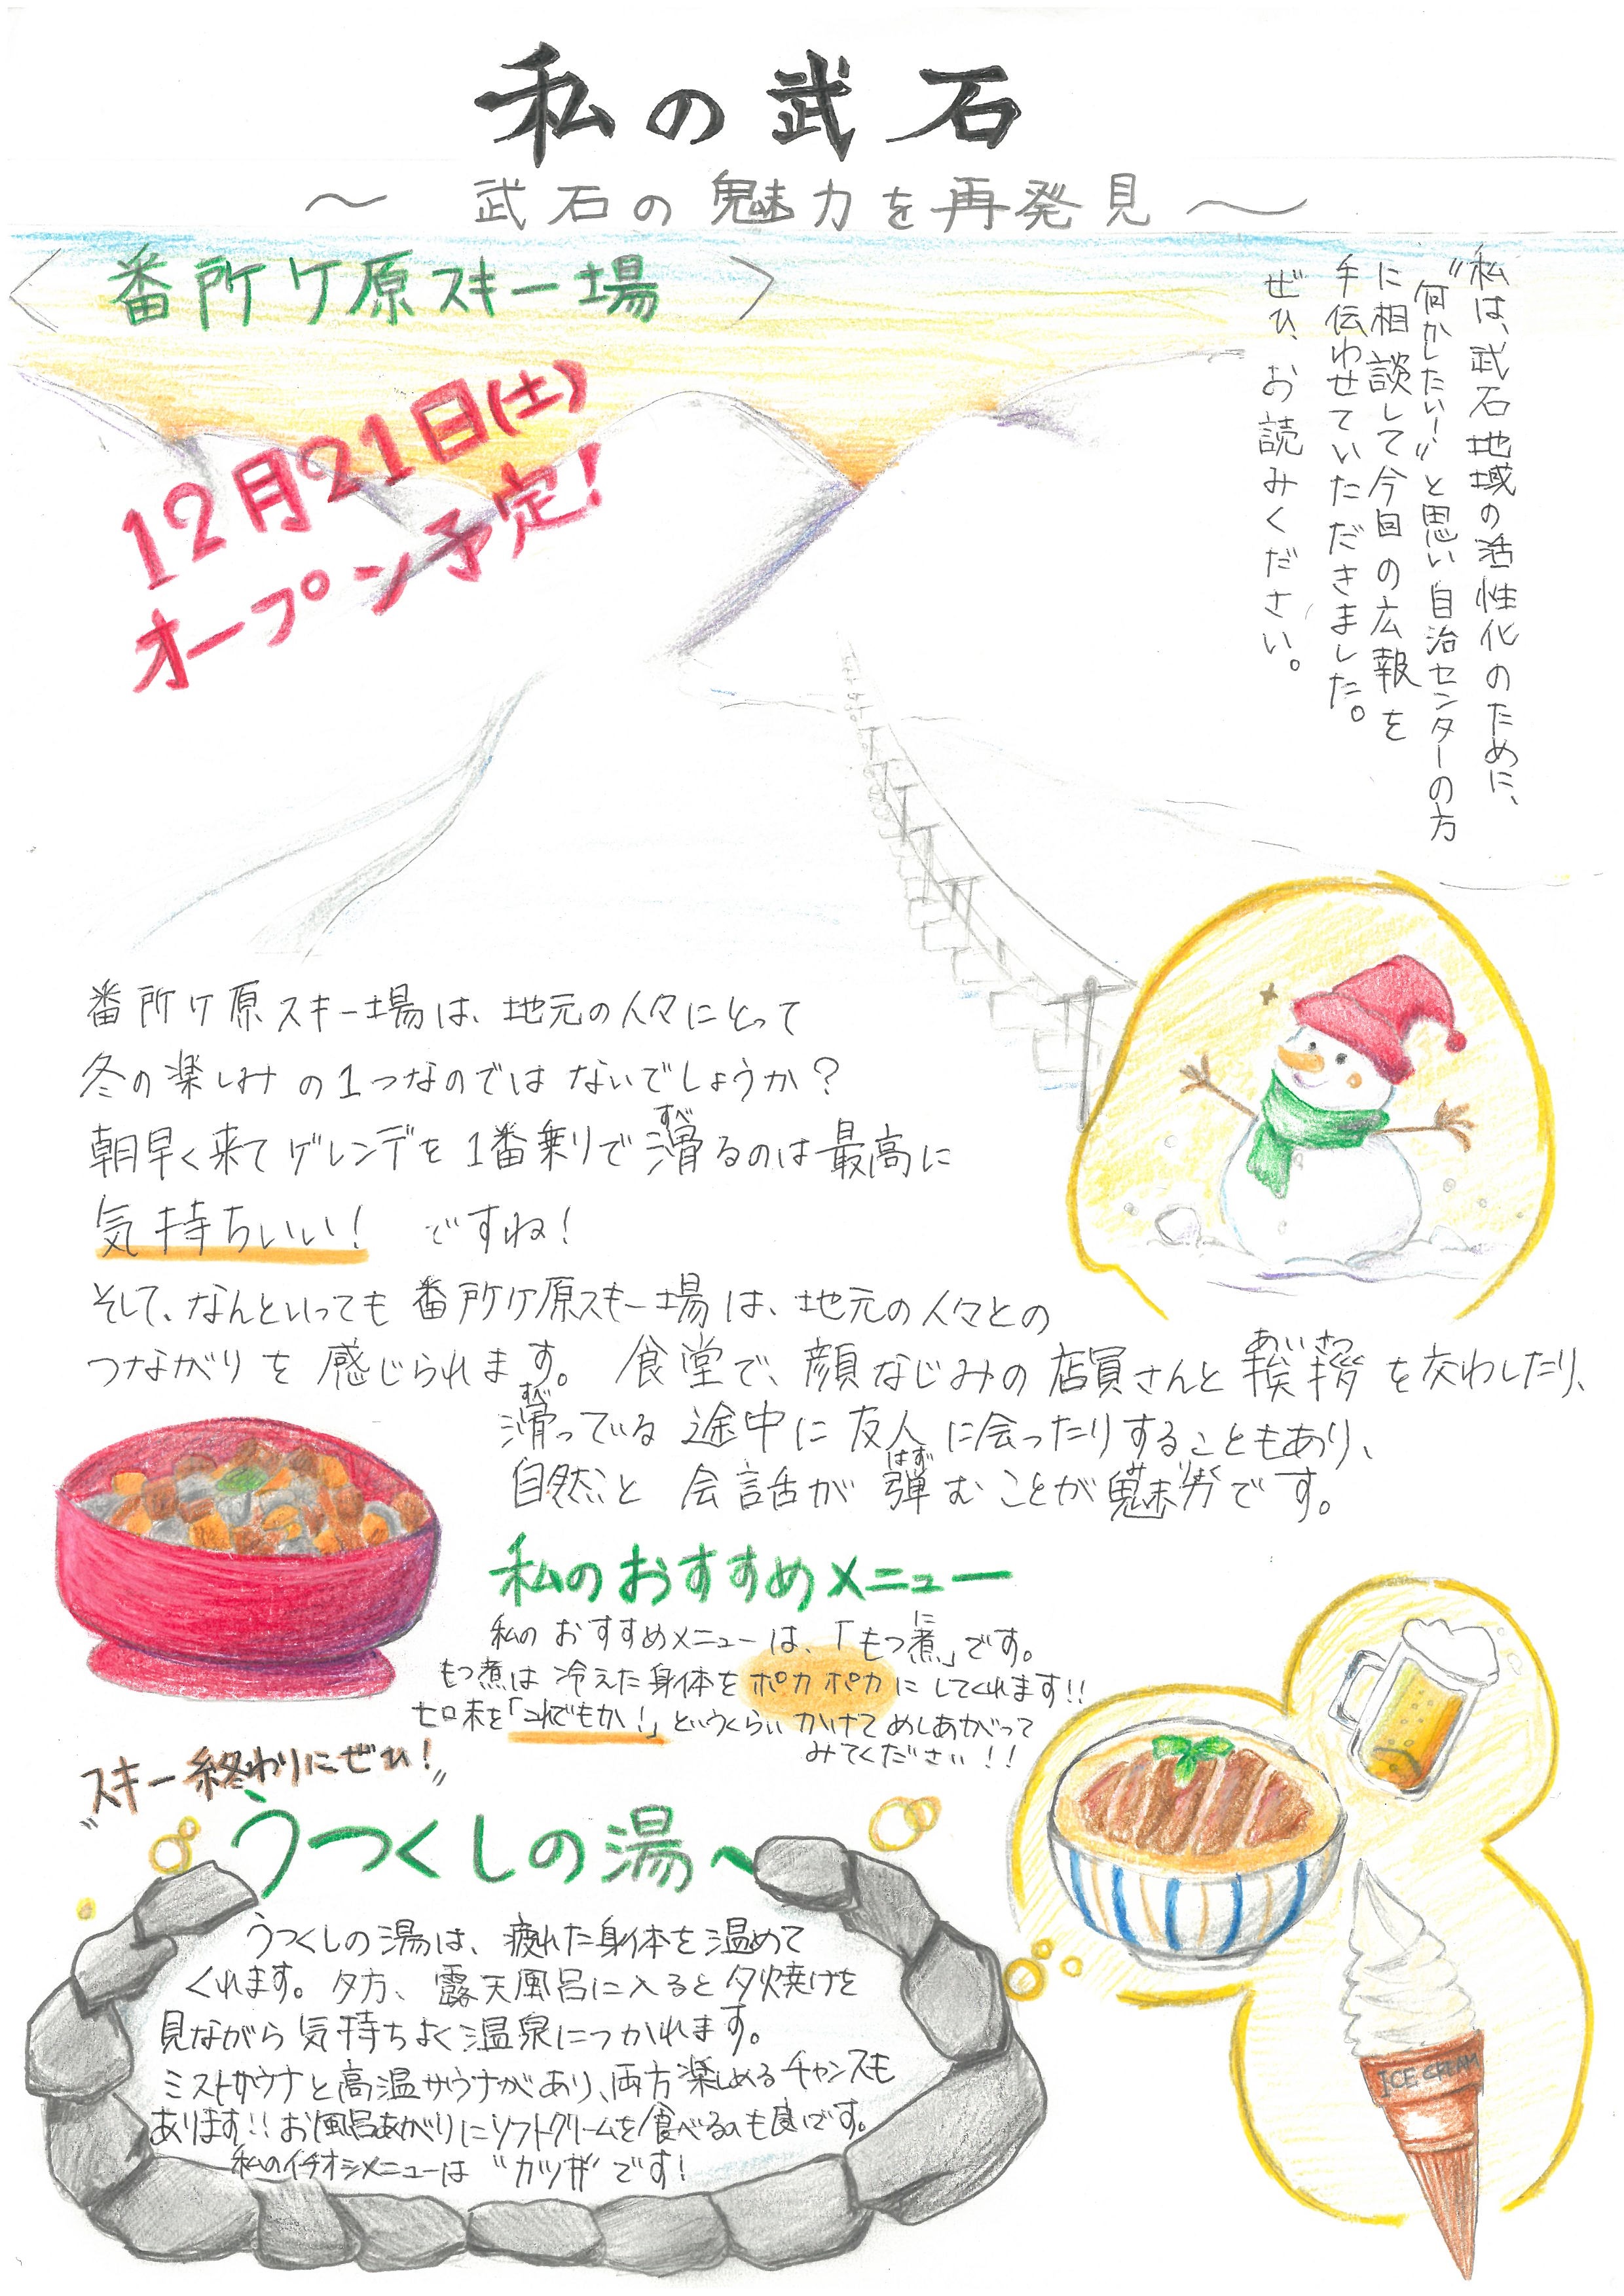 私の武石
～ 武石の魅力を再発見 ～
〈 番所ケ原スキー場 〉
12月21日(土)
オープン予定!
私は、武石地域の活性化のために、
"何かしたい!"と思い自治センターの方
に相談して今回の広報を
手伝わせていただきました。
ぜひ、お読みください。
番所ケ原スキー場は、地元の人々にとって
冬の楽しみの1つなのではないでしょうか?
朝早く来てゲレンデを1番乗りで滑るのは最高に
すべ
気持ちいい! ですね!
そして、なんといっても番所ケ原スキー場は、地元の人々との
つながりを感じられます。食堂で、顔なじみの店員さんと挨拶を交わしたり、
あいさつ
滑っている途中に友人に会ったりすることもあり、
すべ
自然と会話が弾むことが魅力です。
はず
みりょく
私のおすすめメニュー
私のおすすめメニューは、「もつ煮」です。
に
もつ煮は冷えた身体をポカポカにしてくれます!!
七味を「これでもか!」というくらいかけてめしあがって
みてください!!
"スキー終わりにぜひ!"
うつくしの湯～
うつくしの湯は、疲れた身体を温めて
くれます。夕方、露天風呂に入ると夕焼けを
見ながら気持ちよく温泉につかれます。
ミストサウナと高温サウナがあり、両方楽しめるチャンスも
あります!!お風呂あがりにソフトクリームを食べるのも良いです。
私のイチオシメニューは"カツ丼"です!
ICE CREAM